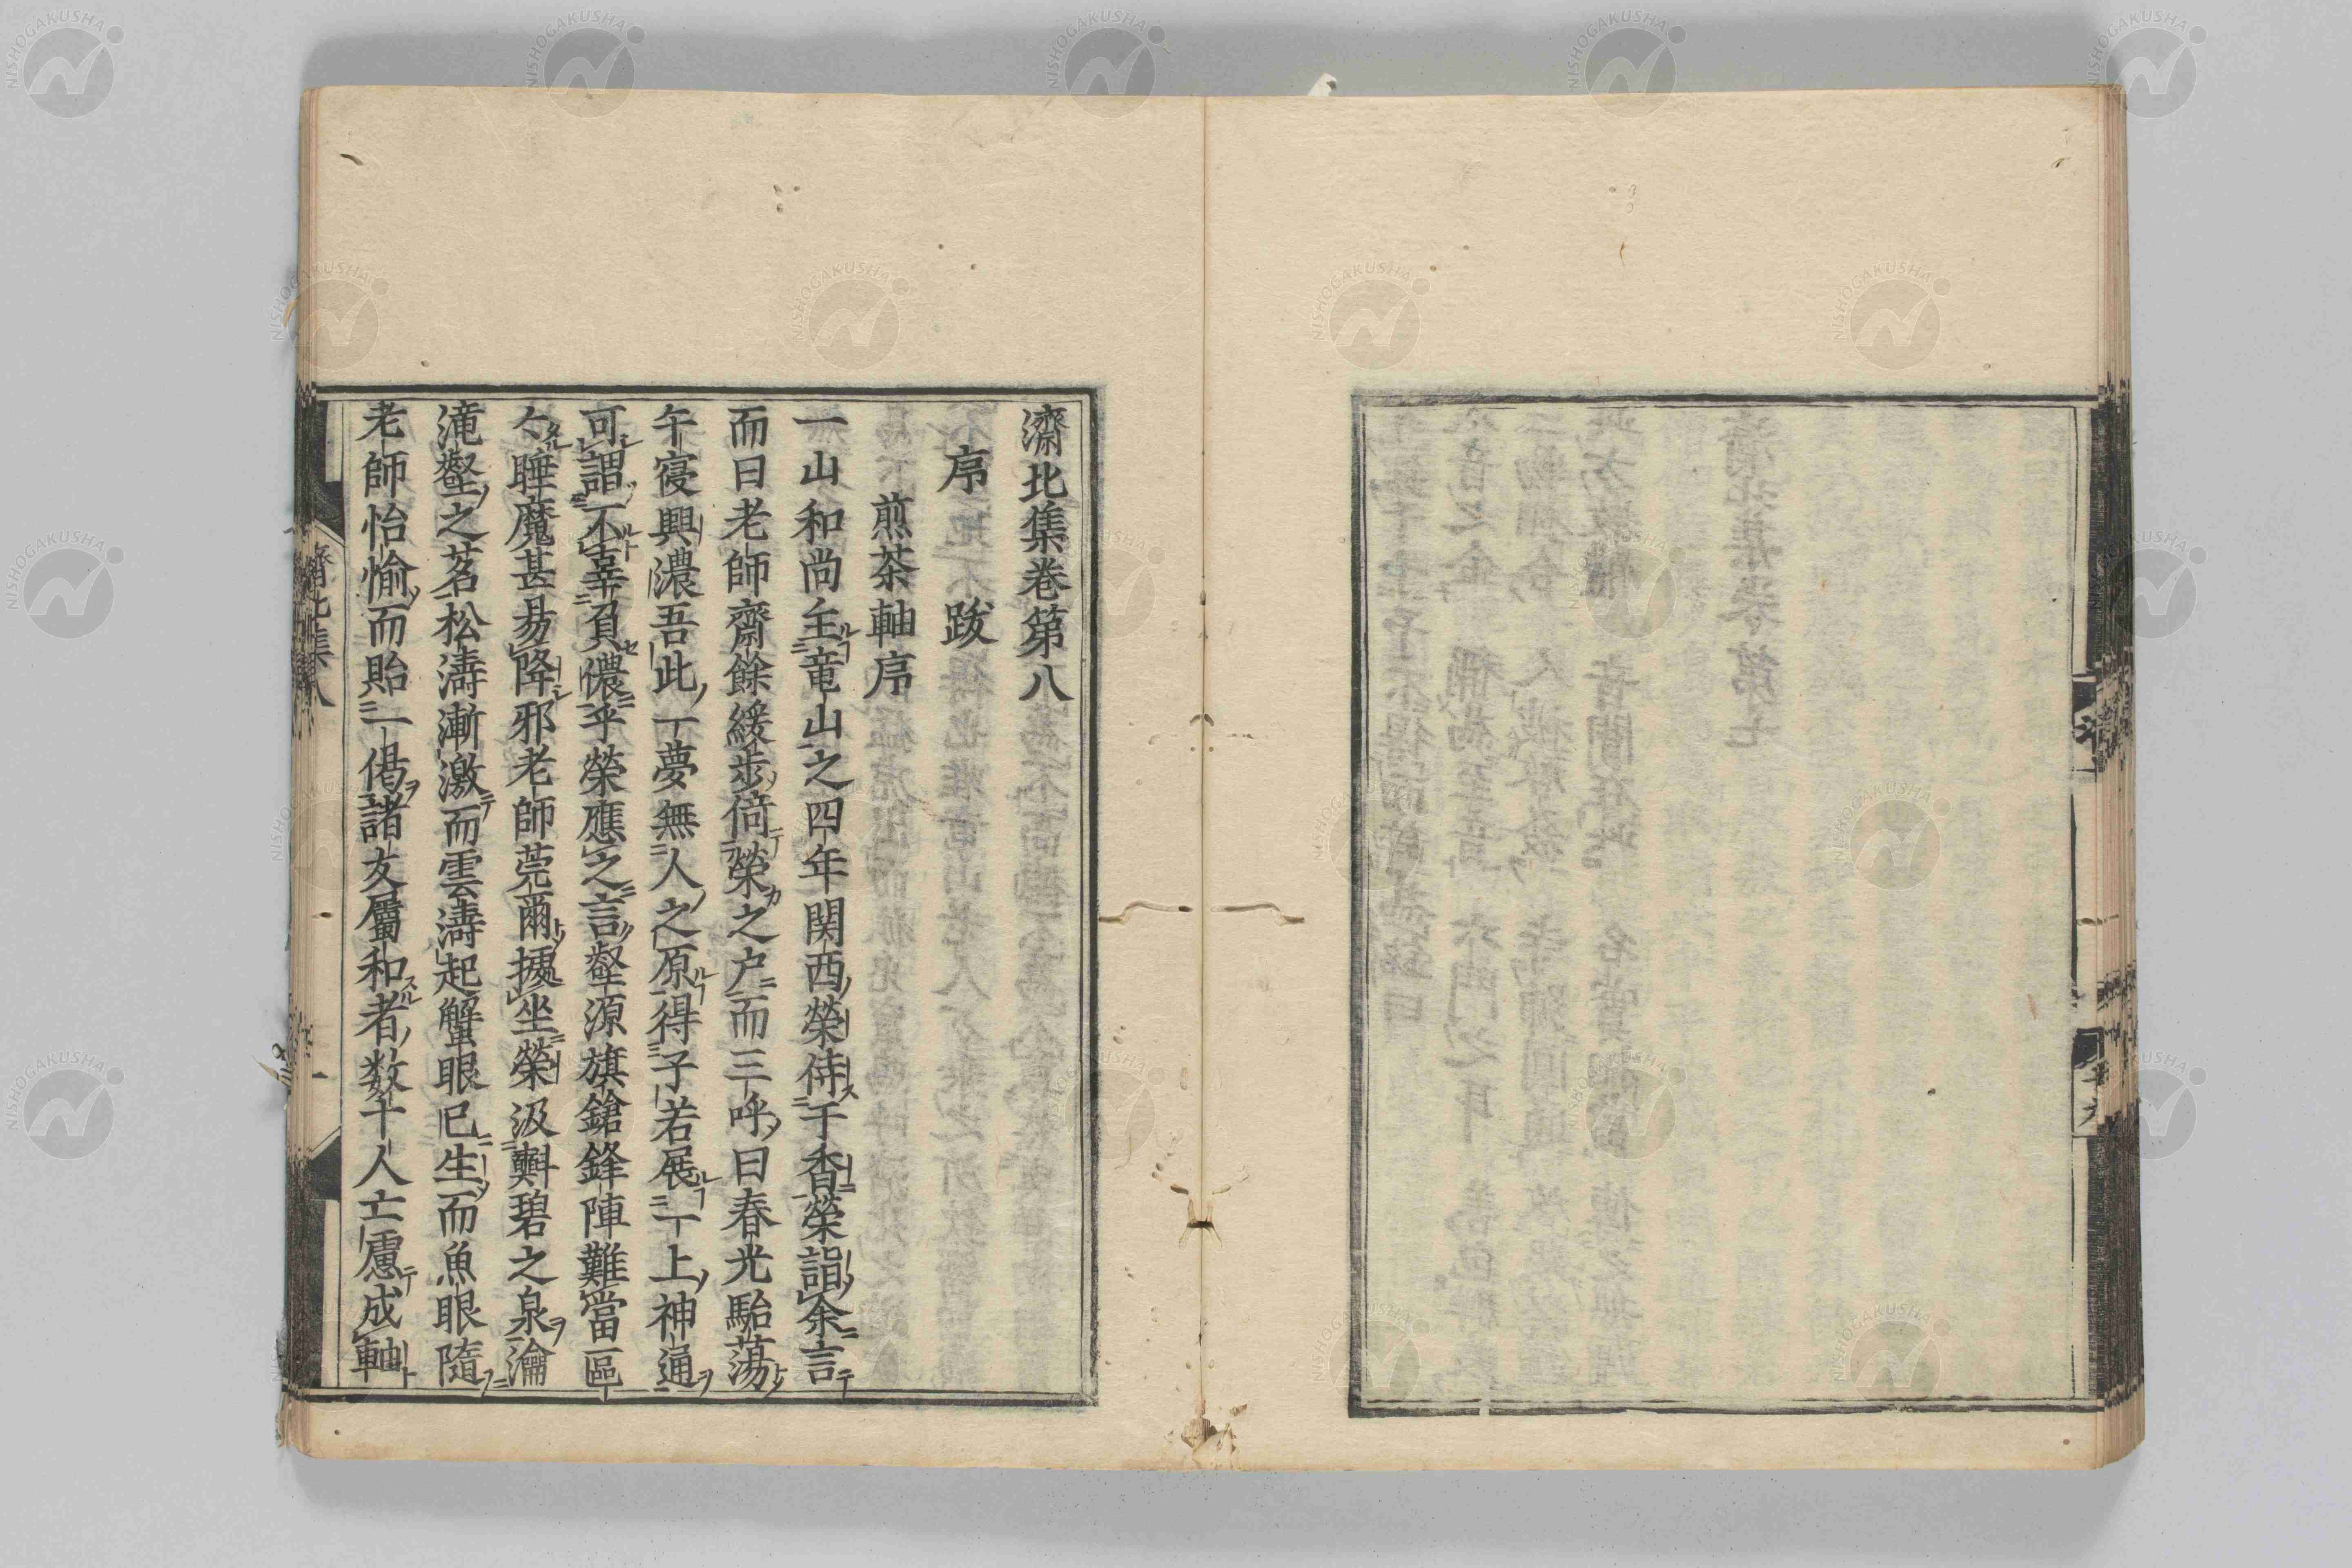 濟北集卷第八
序　跋
煎茶軸序
一山和尚主竜山之四年関西榮侍于香榮詣余言
而曰老師齋餘緩步倚榮之户而三呼曰春光駘蕩
午寝興濃吾此一夢無人之原得子若展一上神通
可謂不辜負儂乎榮應之言壑源旗鎗鋒陣難當區
々睡魔甚易降邪老師莞爾據坐榮汲㪺碧之泉瀹
滝壑之茗松濤漸激而雲濤起蟹眼已生而魚眼隨
老師怡愉而貽一偈諸友屬和者数十人亡慮成軸
濟北集八
一
NISHOGAKUSHA